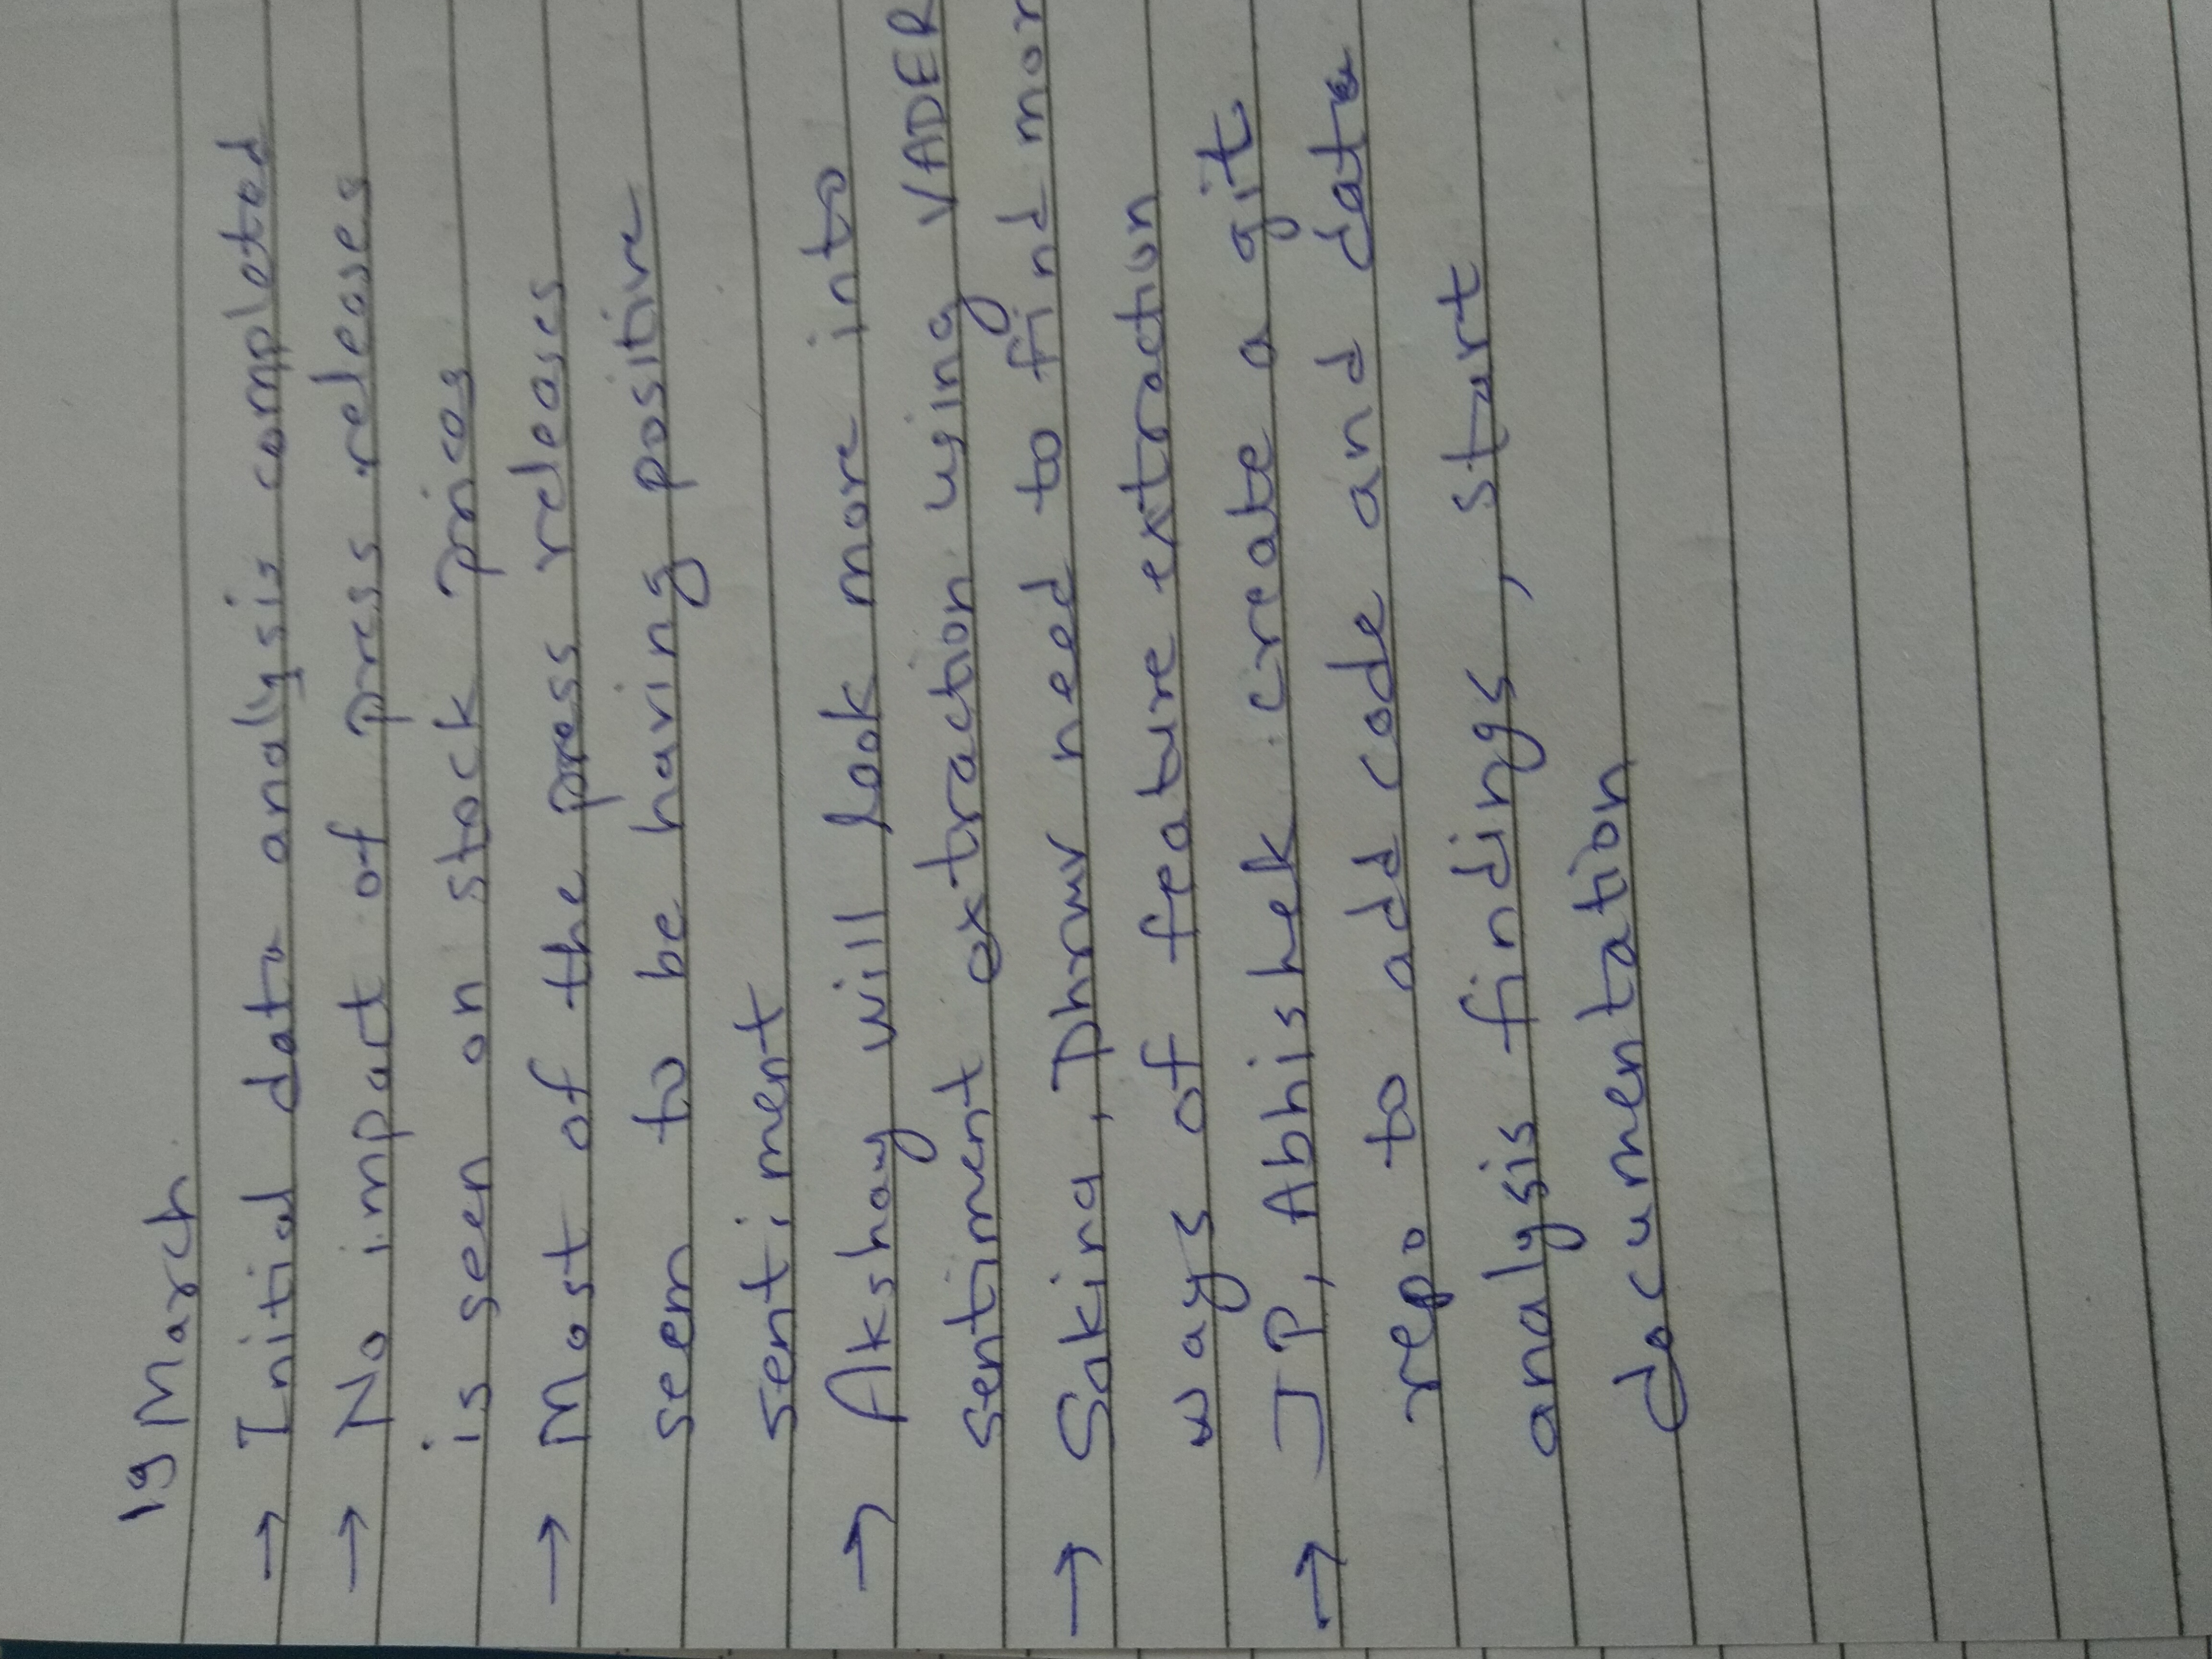 19 March
→ Initial data analysis completed
→ No impact of press releases
is seen on stock prices
→ Most of the press releases
seem to be having positive
sentiment
→ Akshay will look more into
sentiment extraction using VADER
→ Sakina, Dhruv need to find mor
ways of feature extraction
→ JP, Abhishek create a git
repo to add code and data
analysis findings, start
documentation